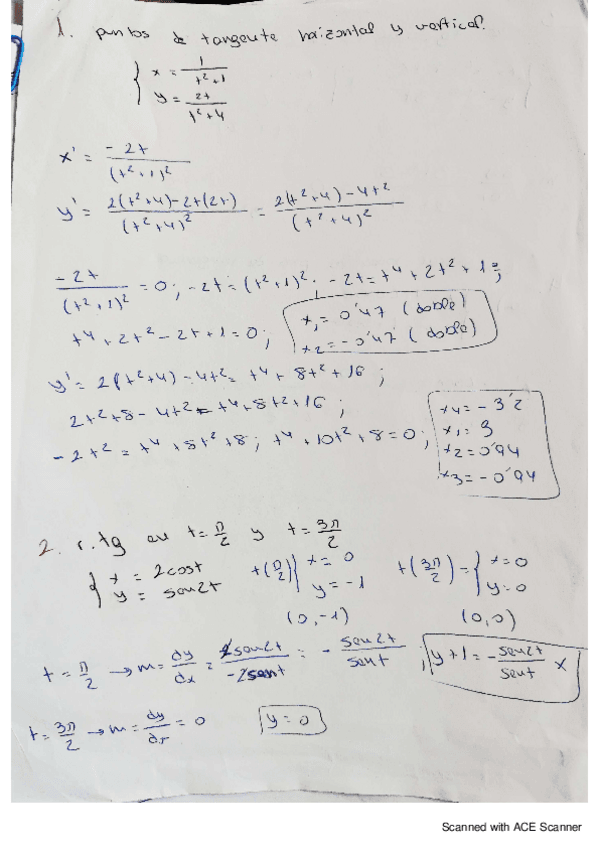 1. puntos de tangente horizontal y vertical?
{ x = 1/(t²+1)
y = 2t/(t²+4)
x' = -2t/(t²+1)²
y' = (2(t²+4)-2t(2t))/(t²+4)² = (2(t²+4)-4t²)/(t²+4)²
-2t/(t²+1)² = 0; -2t = (t²+1)²; -2t = t⁴+2t²+1;
t⁴+2t²-2t+1=0; x₁ = 0'47 (doble)
x₂ = -0'47 (doble)
y' = 2(t²+4)-4t² = t⁴+8t²+16;
2t²+8-4t² = t⁴+8t²+16;
-2t² = t⁴+8t²+8; t⁴+10t²+8=0;
x₄ = -3'2
x₁ = 3
x₂ = 0'94
x₃ = -0'94
2. r.tg en t = π/2 y t = 3π/2
{ x = 2cost
y = sen2t
t(π/2) { x = 0
y = -1
t(3π/2) = { x = 0
y = 0
(0,-1) (0,0)
t = π/2 → m = dy/dx = 2sen2t/-2sent = - sen2t/sent; y+1 = - sen2t/sent x
t = 3π/2 → m = dy/dx = 0 y = 0
Scanned with ACE Scanner